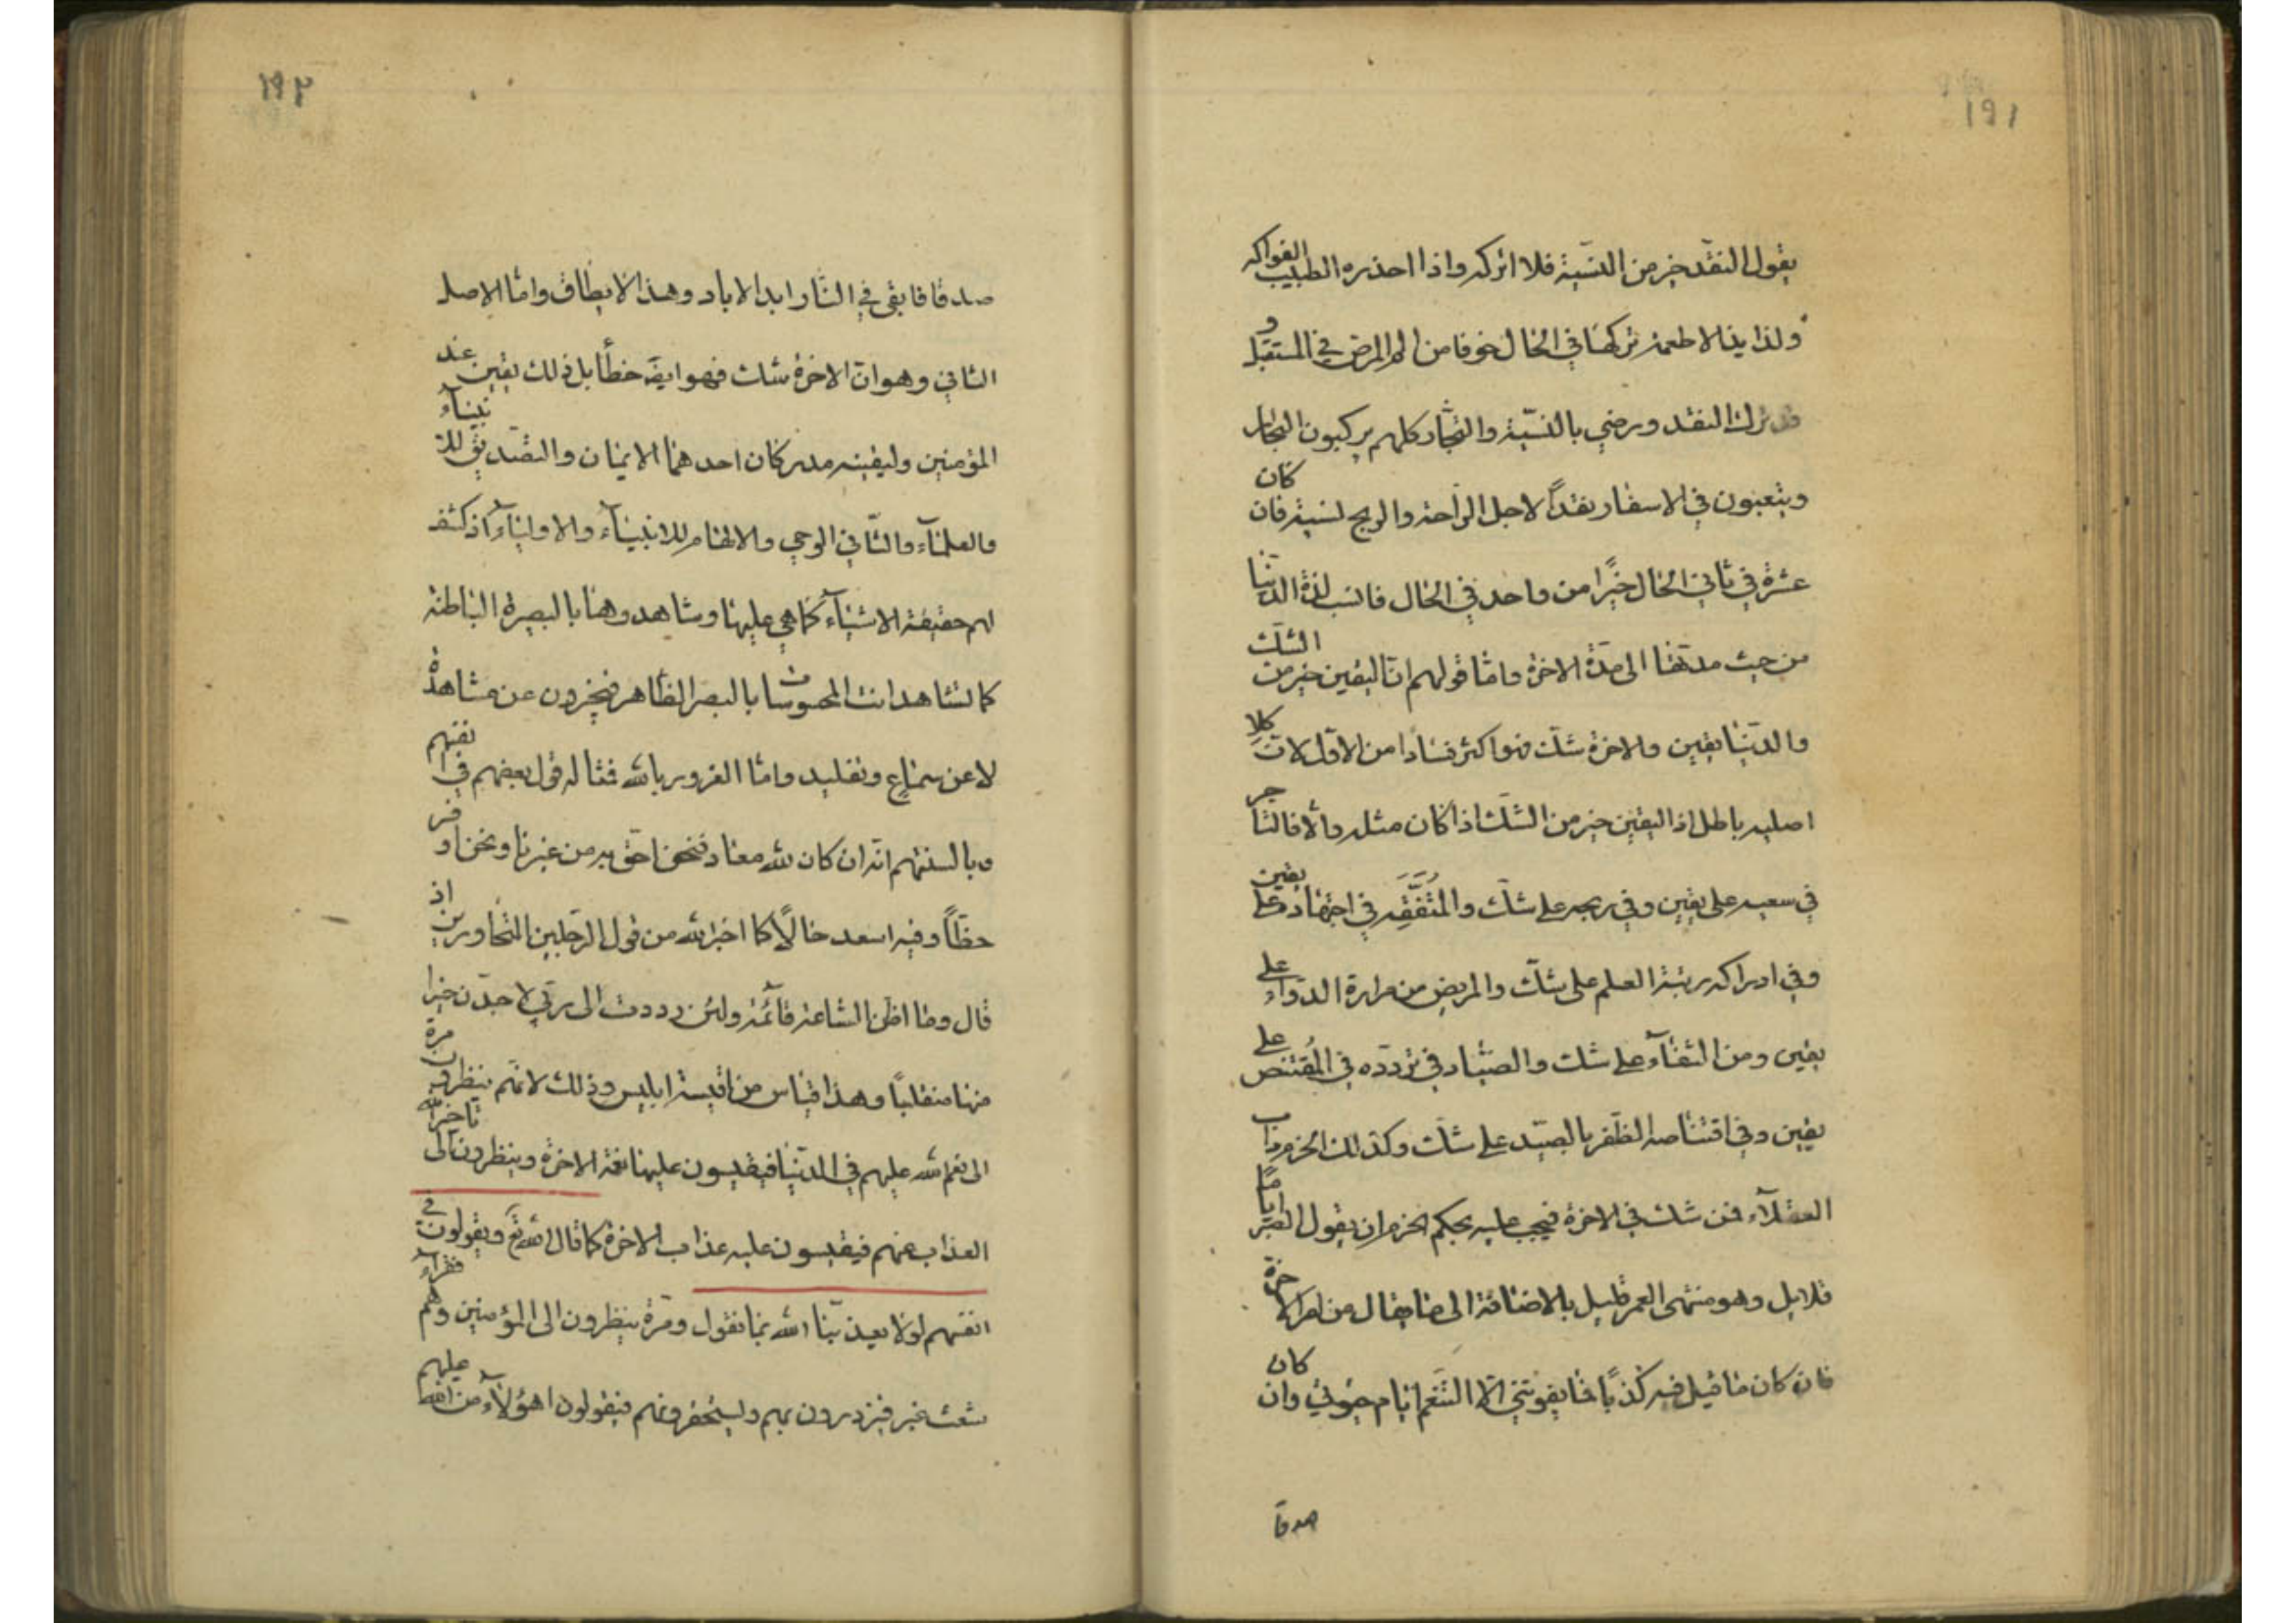 ١٩١
يقول النقد خير من النسية فلا اتركه واذا احذره الطبيب الفواكه
ولذايذ الاطعمة تركها في الحال خوفا من الم المرض في المستقبل و
قد ترك النقد ورضي بالنسية والتجار كلهم يركبون البحار
ويتعبون في الاسفار نقداً لاجل الراحة والربح نسية فان كان
عشرة في ثاني الحال خيرًا من واحد في الحال فانسب لذة الدنيا
من حيث مدتها الى مدة الاخرة واما قولهم ان اليقين خير من الشك
والدنيا يقين والاخرة شك فهو اكثر فسادا من الاول لان كلا
اصليه باطل اذ اليقين خير من الشك اذا كان مثله والا فالتاجر
في سعيه على يقين وفي ربحه على شك والمتفقه في اجتهاده على يقين
وفي ادراكه رتبة العلم على شك والمريض من مرارة الدواء على
يقين ومن الشفاء على شك والصياد في تردده في المقتنص على
يقين وفي اقتناصه الظفر بالصيد على شك وكذلك الحزم داب
العقلاء فمن شك في الاخرة فيجب عليه بحكم الحزم ان يقول الصبر اياما
قلايل وهو منتهى العمر قليل بالاضافة الى ما يقال من امر الاخرة
فان كان ما قيل فيه كذباً فما يفوتني الا التنعم ايام حيوتي وان كان
صدقا
١٩٢
صدقا فابقى في النار ابد الاباد وهذا لا يطاق واما الاصل
الثاني وهو ان الاخرة شك فهو ايضه خطأ بل ذلك يقين عند
المؤمنين وليقينه مدركان احدهما الايمان والتصديق للانبياء
والعلماء والثاني الوحي والالهام للانبياء والاولياء اذ كشف
لهم حقيقة الاشياء كما هي عليها وشاهدوها بالبصيرة الباطنة
كما تشاهد انت المحسوسات بالبصر الظاهر فيخبرون عن مشاهدة
لا عن سماع وتقليد واما الغرور بالله فمثاله قول بعضهم في نفسهم
وبالسنتهم انه ان كان لله معاد فنحن احق به من غيرنا ونحن اوفر
حظاً وفيه اسعد حالاً كما اخبر الله من قول الرجلين المتحاورين اذ
قال وما اظن الساعة قائمة ولئن رددت الى ربي لاجدن خيرا
منها منقلباً وهذا قياس من اقيسة ابليس وذلك لانهم ينظرون مرة
الى نعم الله عليهم في الدنيا فيقيسون عليها نعة الاخرة وينظرون الى تاخر
العذاب عنهم فيقيسون عليه عذاب الاخرة كما قال الله تع ويقولون في
انفسهم لولا يعذبنا الله بما نقول ومرة ينظرون الى المؤمنين وهم فقراء
شعث غبر فيزدرون بهم ويستحقرونهم فيقولون اهؤلاء من الله عليهم